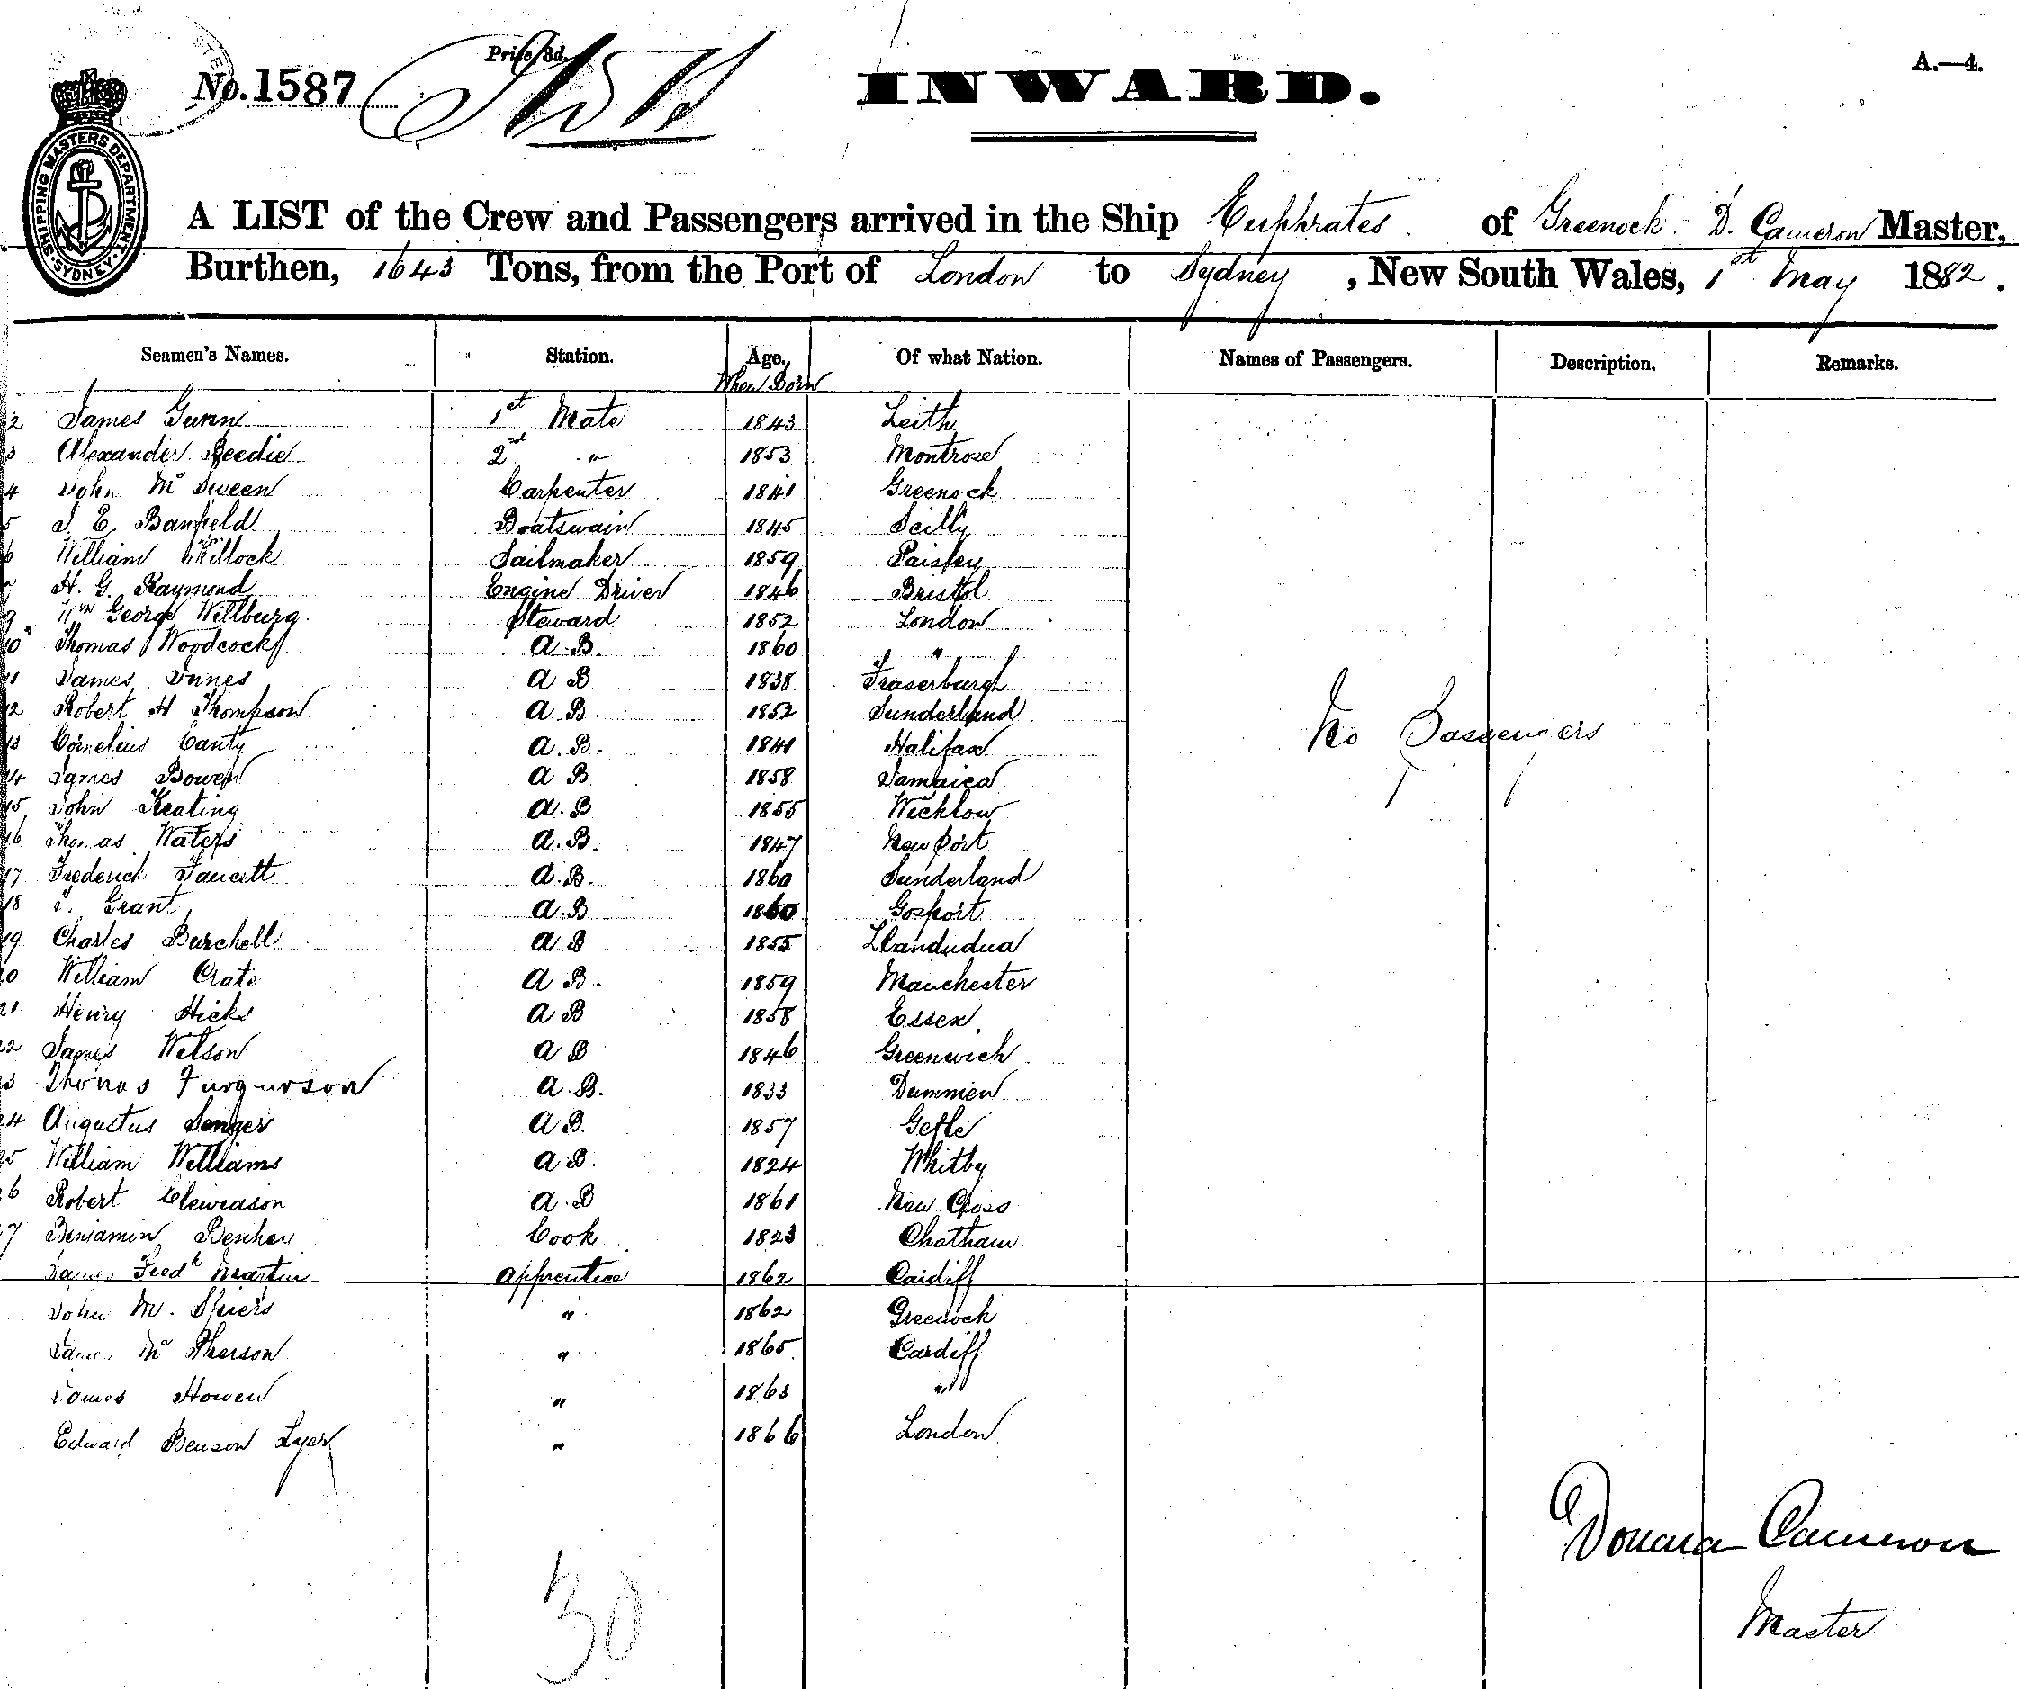 No. 1587
Price 3d.
INWARD.
A.—4.
SHIPPING MASTERS DEPARTMENT SYDNEY
A LIST of the Crew and Passengers arrived in the Ship Euphrates of Greenock D. Cameron Master,
Burthen, 1643 Tons, from the Port of London to Sydney, New South Wales, 1st May 1882.
Seamen's Names. Station. Age. Of what Nation. Names of Passengers. Description. Remarks.
When Born
2 James Gunn 1st Mate 1843 Leith
3 Alexander Reedie 2nd " 1853 Montrose
4 John McSween Carpenter 1841 Greenock
5 Banfield Boatswain 1845 Scilly
6 William Sailmaker 1859 Paisley
H. G. Raymond Engine Driver 1846 Bristol
9 Wm George Wellburg Steward 1852 London
10 Thomas Woodcock A.B. 1860 "
11 James Innes A B 1838 Fraserburgh
12 Robert H Thompson A B 1852 Sunderland
13 Cornelius Canty A.B. 1841 Halifax
14 James Bowen A B 1858 Jamaica
15 John Keating A.B 1855 Wicklow
16 Thomas Waters A.B. 1847 Newport
17 Frederick Faucett A.B. 1860 Sunderland
18 Grant A.B 1860 Gosport
19 Charles Burchell A B 1855 Llandudua
20 William Crate A B. 1859 Manchester
21 Henry Hicks A B 1858 Essex
22 James Watson A B 1846 Greenwich
23 Thomas Furgurson A.B. 1833
24 Augustus A B. 1857 Gefle
25 William Williams A B. 1824 Whitby
26 Robert A.B 1861 New Cross
27 Benjamin Cook 1823 Chatham
James Fredk Martin Apprentice 1862 Cardiff
John M. Spiers " 1862 Greenock
James McPherson " 1865 Cardiff
James Howen " 1863 "
Edward Benson Lyer " 1866 London
No Passengers
30
Cameron
Master